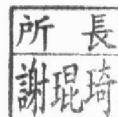 所長
謝琨琦